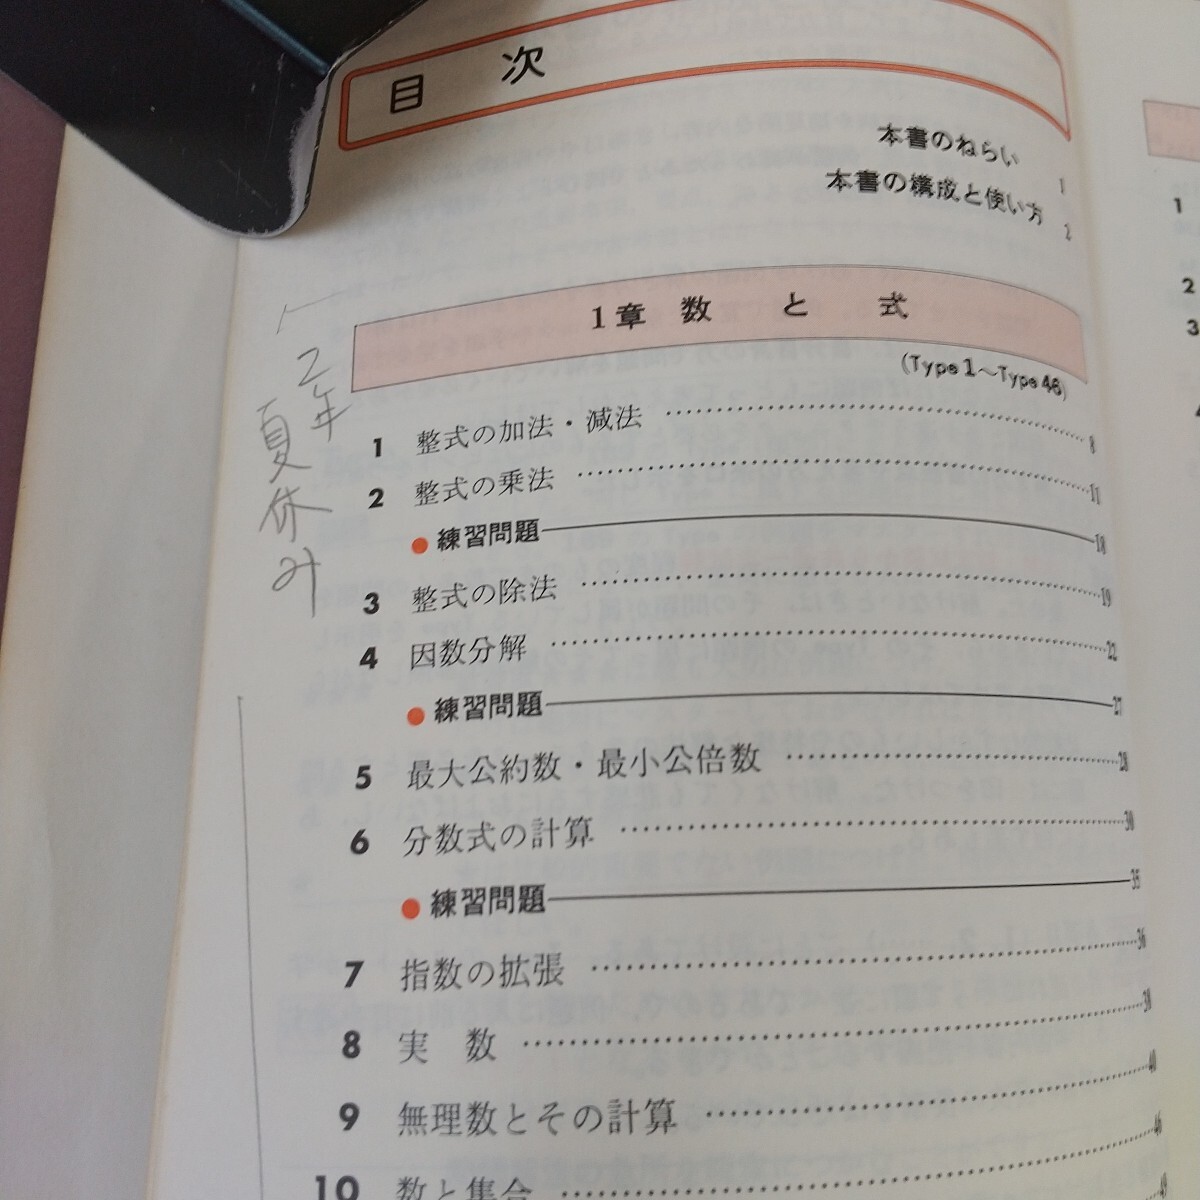 目 次
本書のねらい 1
本書の構成と使い方 2
1章 数 と 式
(Type 1～Type 46)
2年
夏休み
1 整式の加法・減法 8
2 整式の乗法 11
● 練習問題 18
3 整式の除法 19
4 因数分解 22
● 練習問題 27
5 最大公約数・最小公倍数 28
6 分数式の計算 30
● 練習問題 35
7 指数の拡張 36
8 実 数 38
9 無理数とその計算 40
10 数と集合 46
49
1
2
3